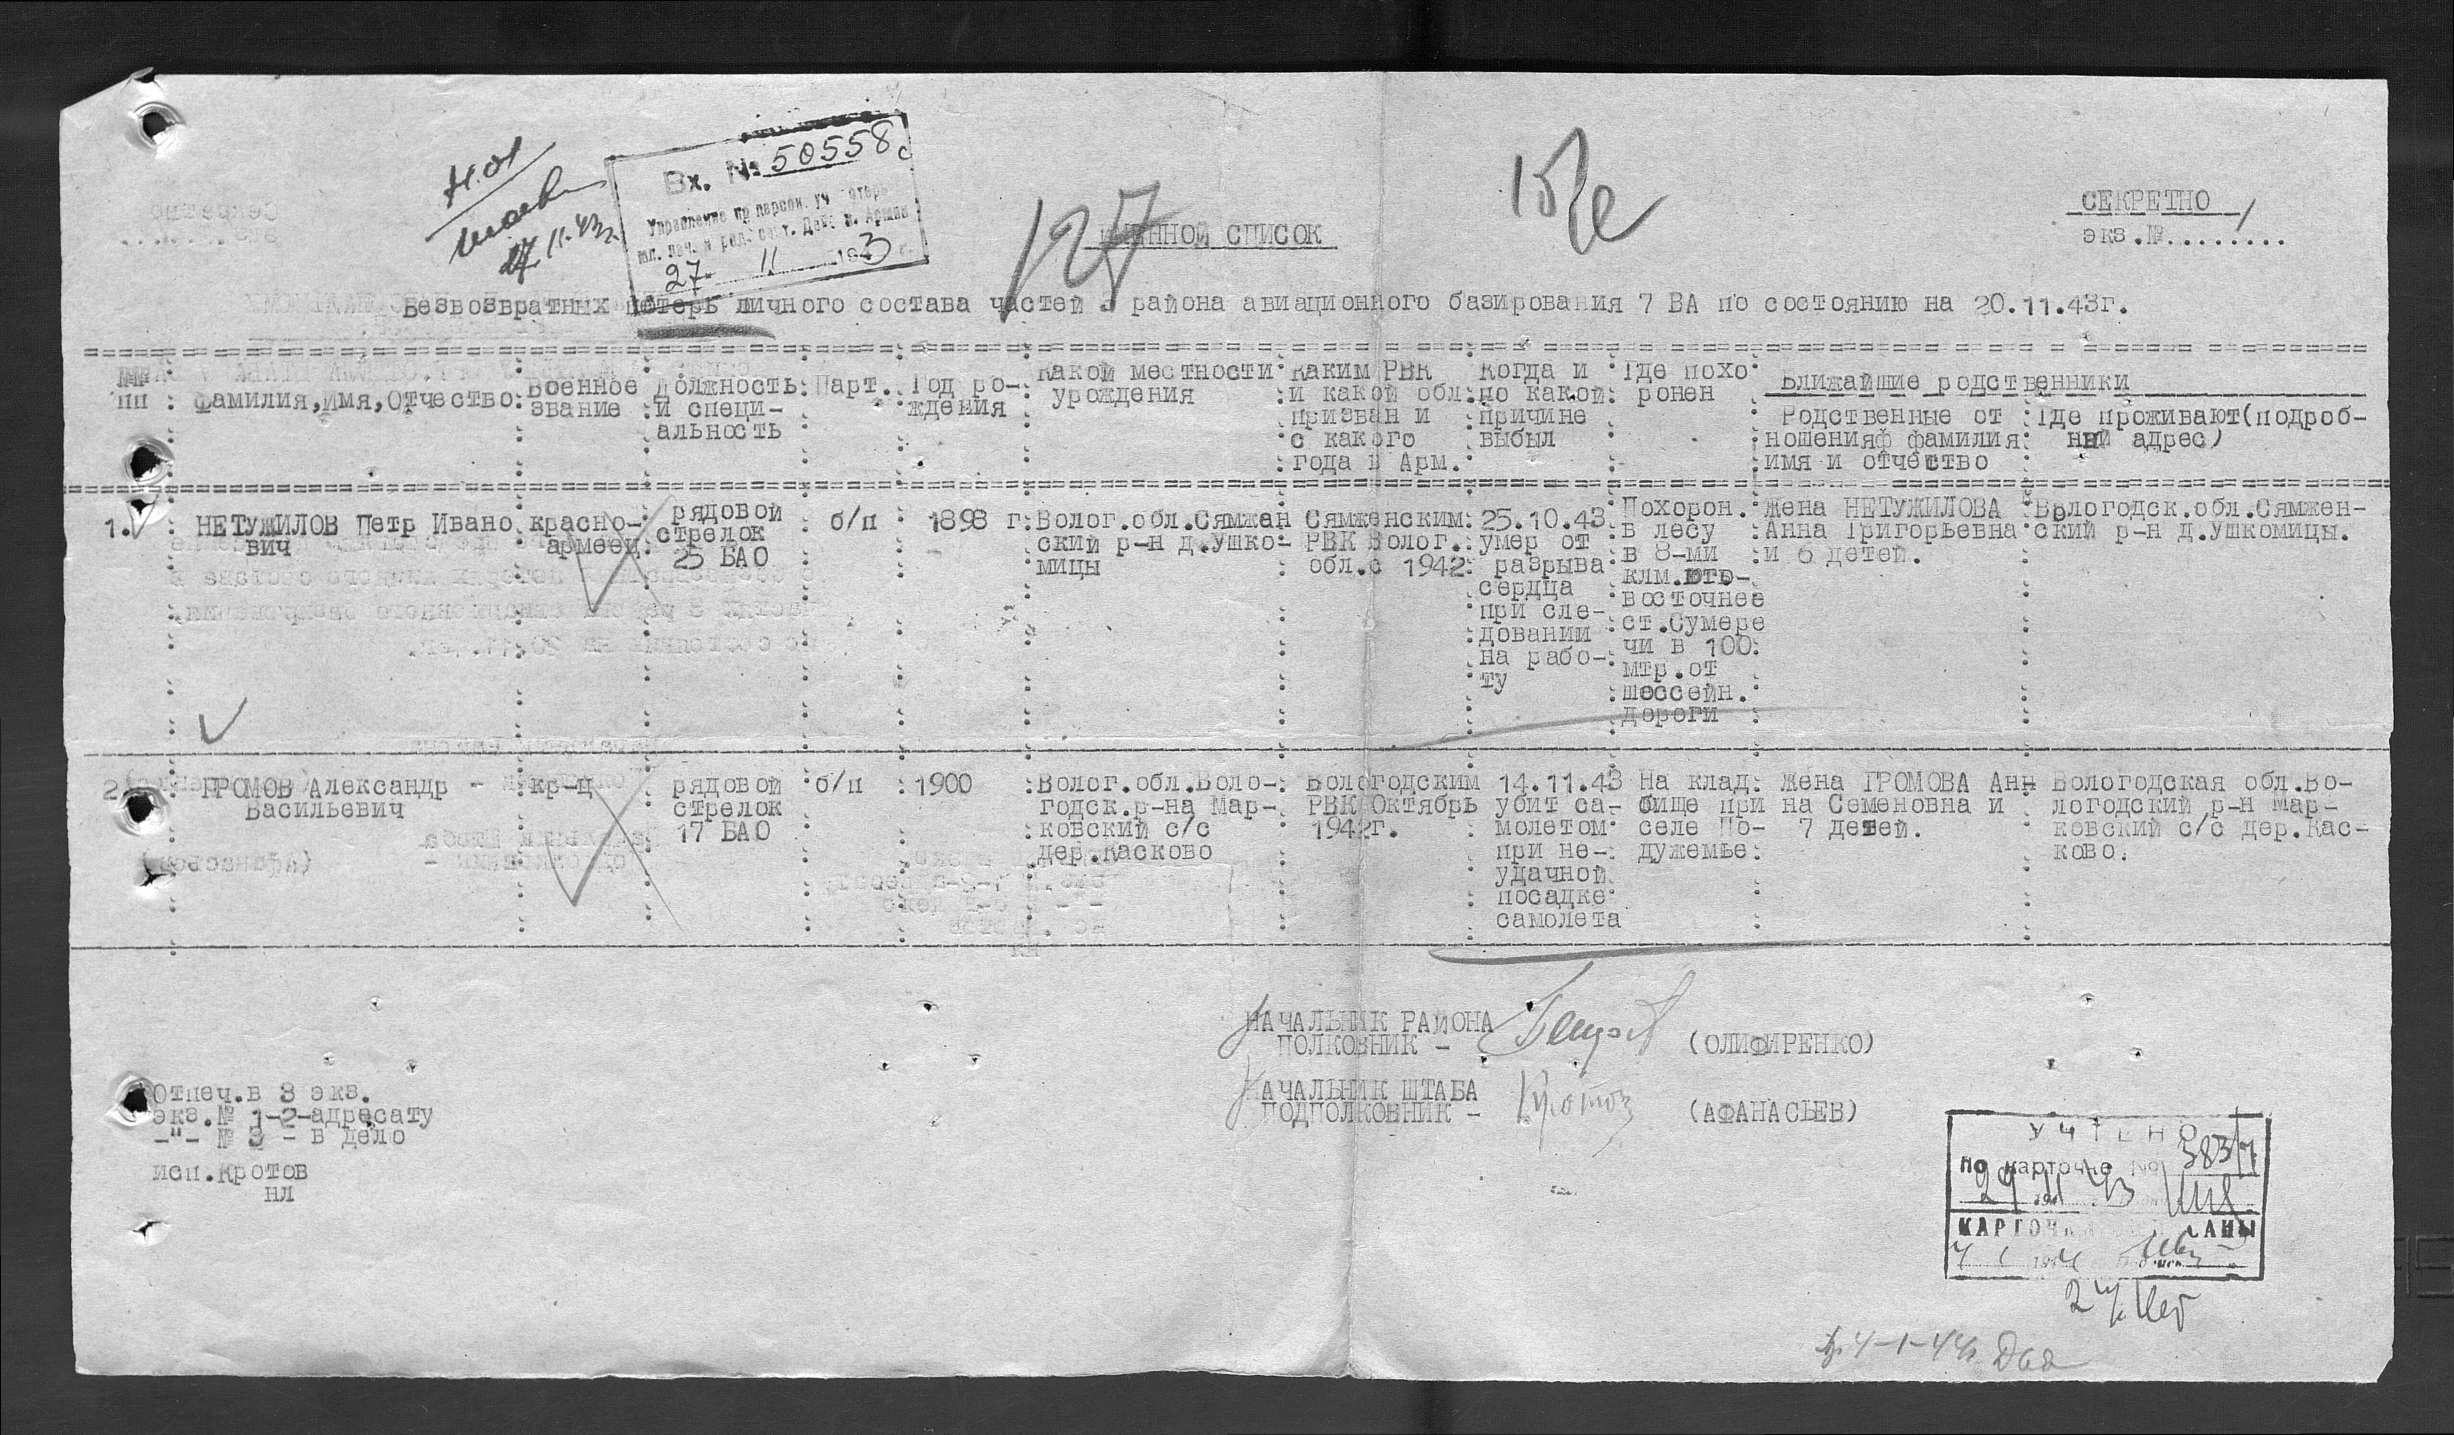 Вх. № 50558с
27 11 1943 г.
27.11.43г.
127
СЕКРЕТНО
экз.№........
ИМЕННОЙ СПИСОК
Безвозвратных потерь личного состава частей 3 района авиационного базирования 7 ВА по состоянию на 20.11.43г.
№№ пп
Фамилия,Имя,Отчество
Военное звание
Должность и специ-альность
Парт.
Год ро-ждения
Какой местности урождения
Каким РВК и какой обл призван и с какого года в Арм.
Когда и по какой причине выбыл
Где похо ронен
Ближайшие родственники
Родственные от ношения, фамилия имя и отчество
Где проживают(подроб-ный адрес)
1.
НЕТУЖИЛОВ Петр Ивано вич
красно-армеец
рядовой стрелок 25 БАО
б/п
1898 г
Волог.обл.Сямжан ский р-н д.Ушко-мицы
Сямженским РВК Волог. обл.с 1942
25.10.43 умер от разрыва сердца при сле-довании на рабо-ту
Похорон. в лесу в 8-ми клм.юго-восточнее ст.Сумере чи в 100 мтр.от шоссейн. дороги
Жена НЕТУЖИЛОВА Анна Григорьевна и 6 детей.
Вологодск.обл.Сямжен-ский р-н д.Ушкомицы.
2.
ГРОМОВ Александр - Васильевич
кр-ц
рядовой стрелок 17 БАО
б/п
1900
Волог.обл.Воло-годск.р-на Мар-ковский с/с дер.Касково
Вологодским РВК Октябрь 1942г.
14.11.43 убит са-молетом при не-удачной посадке самолета
На клад бище при селе По-дужемье
Жена ГРОМОВА Анн на Семеновна и 7 детей.
Вологодская обл.Во-логодский р-н Мар-ковский с/с дер.Кас-ково.
НАЧАЛЬНИК РАЙОНА
ПОЛКОВНИК -
(ОЛИФИРЕНКО)
НАЧАЛЬНИК ШТАБА
ПОДПОЛКОВНИК -
Кротов
(АФАНАСЬЕВ)
Отпеч.в 3 экз.
экз.№ 1-2-адресату
-"- № 3 - в дело
исп.Кротов
нл
УЧТЕНО
по карточке №
29 11 43
4-1-44г